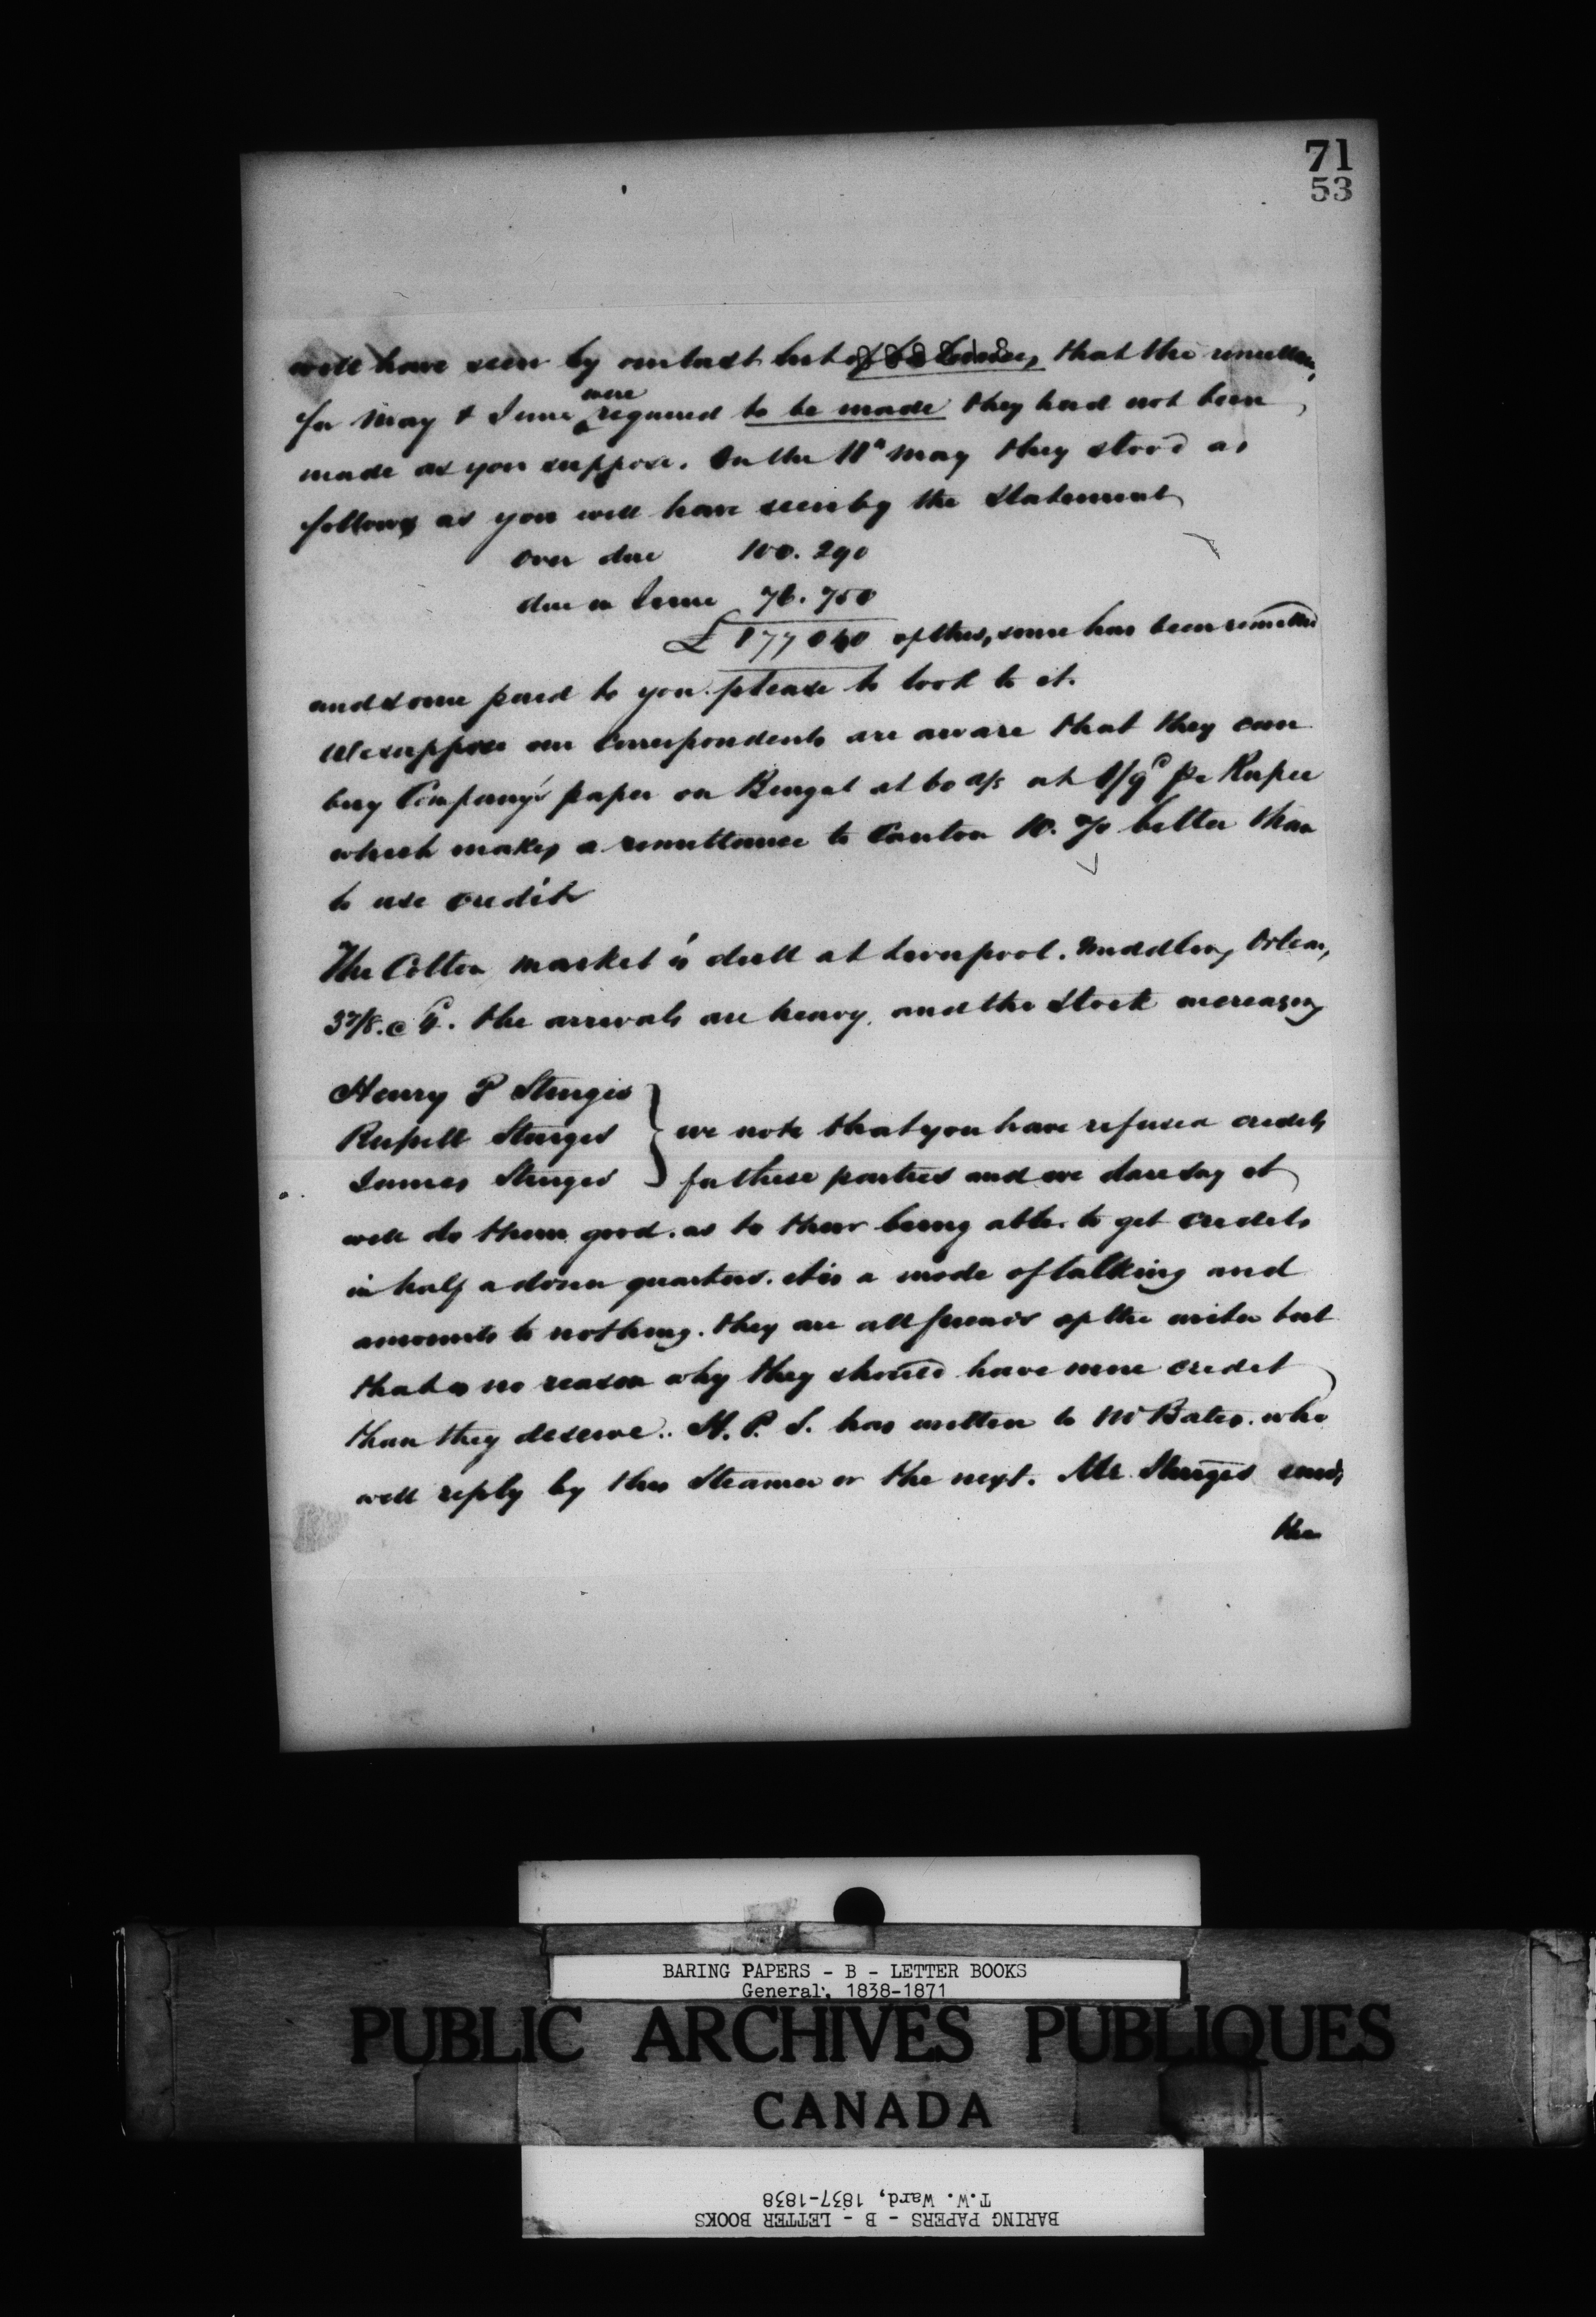 71
53
will have seen by our last list of balances, that the remittances
for May & June were required to be made they had not been
made as you suppose. On the 11th May they stood as
follows as you will have seen by the Statement
Over due 100.290
due in June 76.750
£ 177040 of this, some has been remitted
and some paid to you please to look to it.
We suppose our Correspondents are aware that they can
buy Company's paper on Bengal at 60 d/s at 1/9d pr Rupee
which makes a remittance to Canton 10. % better than
to use credits
The Cotton market is dull at Liverpool. Middling Orleans,
37/8. @ 4. the arrivals are heavy. and the Stock increasing
Henry P Sturgis
Russell Sturgis } we note that you have refused credits
James Sturgis for these parties and we dare say it
will do them good. as to their being able to get credits
in half a dozen quarters. it is a mode of talking and
amounts to nothing. they are all friends of the writer but
that is no reason why they should have more credit
than they deserve.. H. P. S. has written to Mr Bates. who
will reply by this Steamer or the next. Mr. Sturgis
the
BARING PAPERS - B - LETTER BOOKS
General, 1838-1871
PUBLIC ARCHIVES PUBLIQUES
CANADA
BARING PAPERS - B - LETTER BOOKS
T.W. Ward, 1837-1838